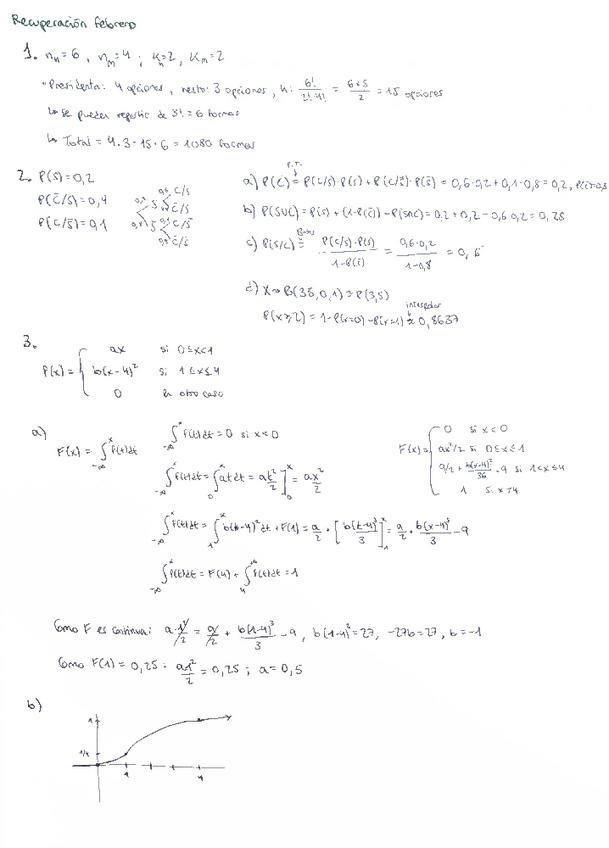 Recuperación febrero
1. nₕ=6, nₘ=4; Kₕ=2, Kₘ=2
Presidenta: 4 opciones, resto: 3 opciones, H: 6!/2!·4! = 6·5/2 = 15 opciones
↳ se pueden repartir de 3! = 6 formas
↳ Total = 4·3·15·6 = 1080 formas
2. P(S)=0,2
P(C̄/S)=0,4
P(C/S̄)=0,1
C/S
C̄/S
C/S̄
C̄/S̄
P.T.
a) P(C) = P(C/S)·P(S)+P(C/S̄)·P(S̄) = 0,6·0,2+0,1·0,8=0,2,
b) P(SUC)=P(S)+(1-P(C̄))-P(S∩C)=0,2+0,2-0,6·0,2=0,28
Bayes
c) P(S/C) = P(C/S)·P(S)/1-P(C̄) = 0,6·0,2/1-0,8 = 0,6
d) X~B(35,0,1)≈P(3,5)
P(X≥2)=1-P(X=0)-P(X=1) ≈ 0,8637
3.
f(x) = { ax si 0≤x<1
b(x-4)² si 1≤x≤4
0 en otro caso
a) F(x) = ∫₋∞ˣ f(t)dt
∫₋∞ˣ f(t)dt = 0 si x<0
∫₋∞ˣ f(t)dt = ∫₀ˣ at dt = at²/2]₀ˣ = ax²/2
∫₋∞ˣ f(t)dt = ∫₁ˣ b(t-4)²dt + F(1) = a/2 + [b(t-4)³/3]₁ˣ = a/2 + b(x-4)³/3 - 9
∫₋∞ˣ f(t)dt = F(4) + ∫₄ˣ f(t)dt = 1
F(x) = { 0 si x<0
ax²/2 si 0≤x≤1
si 1<x≤4
1 si x>4
Como F es continua: a·1²/2 = a/2 + b(1-4)³/3 - 9, b(1-4)³=27, -27b=27, b=-1
Como F(1) = 0,25: a·1²/2 = 0,25; a=0,5
b)
1
1/4
1
4